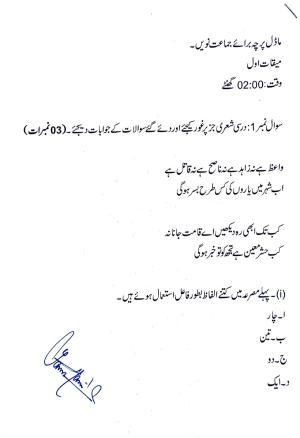 ماڈل پرچہ برائے جماعت نویں۔
میقات اول
وقت: 02:00 گھنٹے
سوال نمبر 1: درسی شعری جز پر غور کیجئے اور دئے گئے سوالات کے جوابات دیجئے۔ (03 نمبرات)
واعظ ہے نہ زاہد ہے نہ ناصح ہے نہ قاتل ہے
اب شہر میں یاروں کی کس طرح بسر ہوگی
کب تک ابھی رہ دیکھیں اے قامت جانانہ
کب حشر معین ہے تجھ کو تو خبر ہوگی
(i)۔ پہلے مصرعہ میں کتنے الفاظ بطور فاعل استعمال ہوئے ہیں۔
ا۔ چار
ب۔ تین
ج۔ دو
د۔ ایک